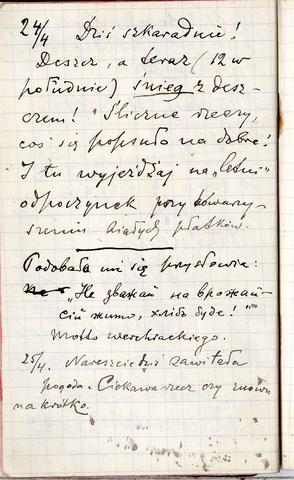 24/4 Dziś szkaradnie!
Deszcz, a teraz (12 w
południe) śnieg z desz-
czem! Śliczne rzeczy,
coś się popsuło na dobre!
I tu wyjeżdżaj na „letni"
odpoczynek przy towarzy-
szeniu białych płatków.
Podobało mi się przysłowie:
„Не зважай на врожай-
сій жито, хліб буде!"
Motto werchrackiego.
25/4. Nareszcie dziś zawitała
pogoda. Ciekawa rzecz czy znowu
na krótko.